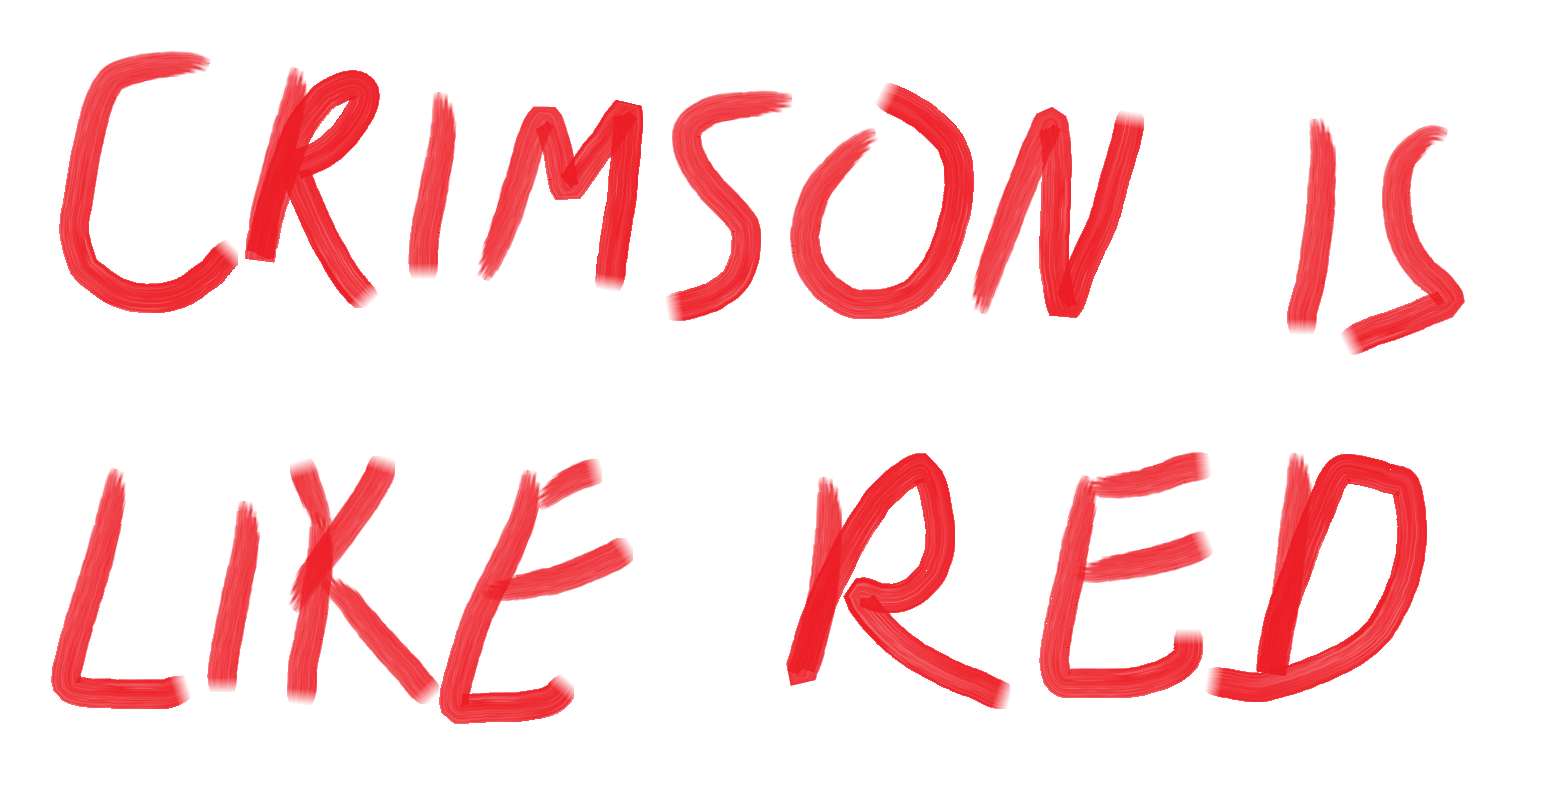 CRIMSON IS
LIKE RED